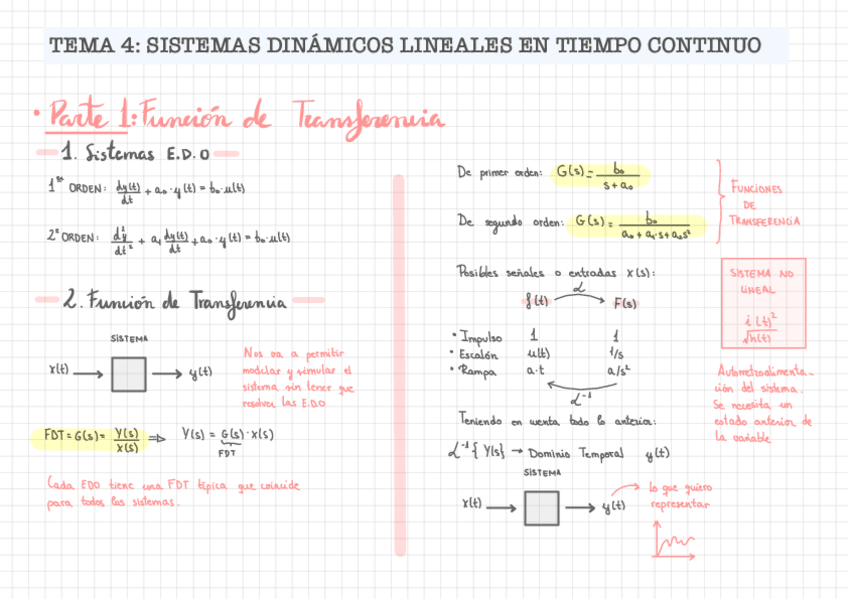 TEMA 4: SISTEMAS DINÁMICOS LINEALES EN TIEMPO CONTINUO
• Parte 1: Función de Transferencia
1. Sistemas E.D.O
1er ORDEN: dy(t)/dt + a₀·y(t) = b₀·u(t)
2º ORDEN: d²y/dt² + a₁ dy(t)/dt + a₀·y(t) = b₀·u(t)
2. Función de Transferencia
SISTEMA
x(t) → y(t)
Nos va a permitir
modelar y simular el
sistema sin tener que
resolver las E.D.O
FDT = G(s) = Y(s)/X(s) ⇒ Y(s) = G(s)·X(s)
FDT
Cada EDO tiene una FDT típica que coincide
para todos los sistemas.
De primer orden: G(s) = b₀/(s + a₀)
De segundo orden: G(s) = b₀/(a₀ + a₁·s + a₀s²)
FUNCIONES
DE
TRANSFERENCIA
Posibles señales o entradas x(s):
ℒ
f(t) → F(s)
• Impulso 1 1
• Escalón u(t) 1/s
• Rampa a·t a/s²
ℒ⁻¹
SISTEMA NO
LINEAL
i(t)²
√h(t)
Autorretroalimenta-
ción del sistema.
Se necesita un
estado anterior de
la variable
Teniendo en cuenta todo lo anterior:
ℒ⁻¹{Y(s)} → Dominio Temporal y(t)
SISTEMA
x(t) → y(t)
lo que quiero
representar